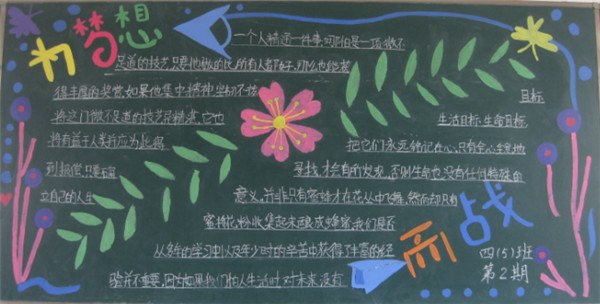 为梦想
而战
一个人精通一件事,哪怕是一项微不
足道的技艺,只要他做的比所有人都好,那么也能获
得丰厚的奖赏,如果他集中精神坚韧不拔
将这门微不足道的技艺
它也
将有益于人类并应为此得
到报偿,只要有
立自己的人生
目标
生活目标,生命目标,
把它们永远铭记在心,只有全心全意地
寻找,才会有所发现,否则生命也没有任何特殊的
意义,并非只有蜜蜂才在花丛中飞舞,然而却只有
蜜蜂花粉收集起来酿成蜂蜜,我们是否
从多年的学习中以及年少时的辛苦中获得了丰富的经
验并不重要,因为如果我们怕人生活时对未来没有
四(5)班
第2期